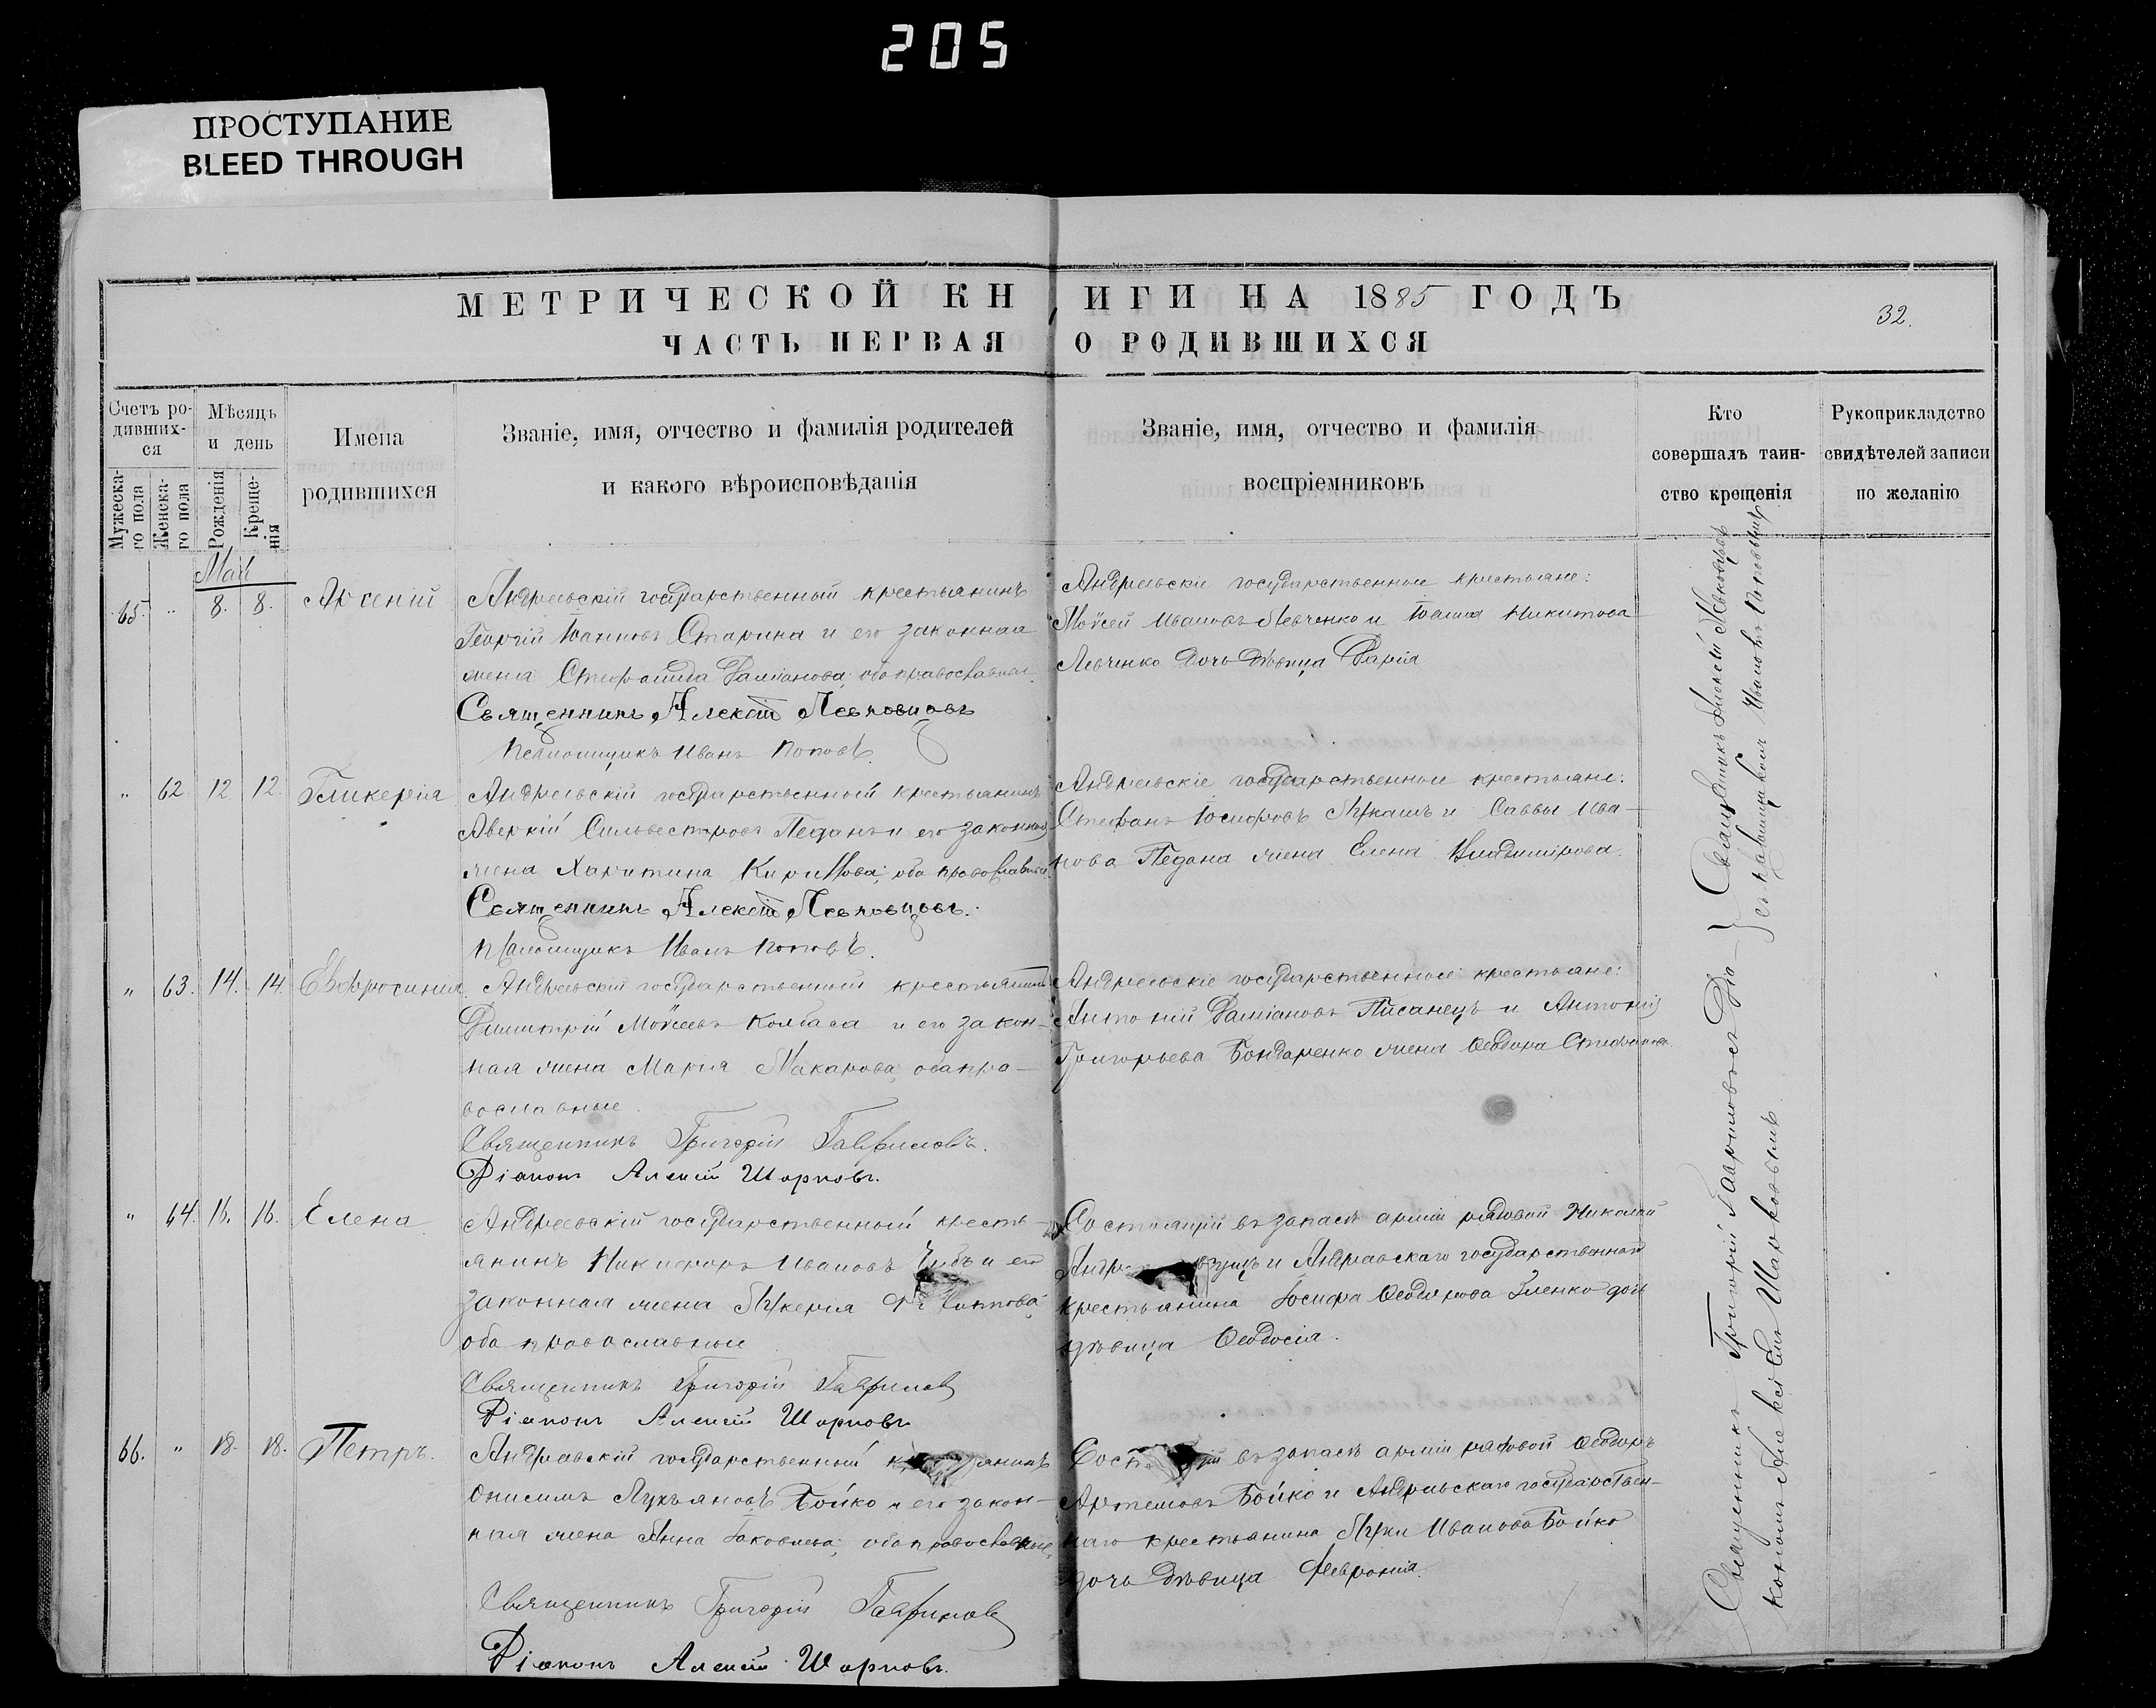 205
ПРОСТУПАНИЕ
BLEED THROUGH
МЕТРИЧЕСКОЙ КНИГИ НА 1885 ГОДЪ
32.
ЧАСТЬ ПЕРВАЯ О РОДИВШИХСЯ
Счетъ ро-
дивших-
ся
Мужеска-
го пола
Женска-
го пола
Мѣсяцъ
и день
Рожденія
Креще-
нія
Имена
родившихся
Званіе, имя, отчество и фамилія родителей
и какого вѣроисповѣданія
Званіе, имя, отчество и фамилія
воспріемниковъ
Кто
совершалъ таин-
ство крещенія
Рукоприкладство
свидѣтелей записи
по желанію
Май
65. " 8. 8. Арсеній
Андреевскій государственный крестьянинъ
Георгій Іоанновъ Старина и его законная
жена Стефанида Даміанова, оба православные.
Священникъ Алексій Левковцовъ
Псаломщикъ Иванъ Поповъ.
Андреевскіе государственные крестьяне:
Моѵсей Ивановъ Левченко и Іоанна Никитова
Левченко дочь дѣвица Дарія
" 62. 12 12. Гликерія
Андреевскій государственный крестьянинъ
Аверкій Сильвестровъ Педанъ и его законная
жена Харитина Кириллова, оба православные.
Священникъ Алексій Левковцовъ.
Псаломщикъ Иванъ Поповъ.
Андреевскіе государственные крестьяне:
Стефанъ Іосифовъ Лукашъ и Саввы Ива-
нова Педана жена Елена Владимірова.
" 63. 14. 14. Евфросинія
Андреевскій государственный крестьянинъ
Димитрій Моѵсеевъ Колбаса и его закон-
ная жена Марія Макарова, оба пра-
вославные.
Священникъ Григорій Гавриловъ.
Діаконъ Алексій Шарковъ.
Андреевскіе государственные крестьяне:
Антоній Даміановъ Писанецъ и Антонія
Григорьева Бондаренко жена Ѳеодора Стефанова.
" 64. 16. 16. Елена
Андреевскій государственный кресть-
янинъ Никифоръ Ивановъ и его
законная жена Лукерія
оба православные
Священникъ Григорій Гавриловъ
Діаконъ Алексій Шарковъ
Состоящій въ запасѣ арміи рядовой Николай
и Андреевскаго государственнаго
крестьянина Іосифа Ѳеодорова Зленко дочь
дѣвица Ѳеодосія.
66. " 18. 18. Петръ.
Андреевскій государственный
Онисимъ Лукьяновъ Бойко и его закон-
ная жена Анна Іаковлева, оба православные.
Священникъ Григорій Гавриловъ
Діаконъ Алексій Шарковъ.
въ запасѣ арміи рядовой Ѳеодоръ
Артемовъ Бойко и Андреевскаго государствен-
наго крестьянина Луки Иванова Бойко
дочь дѣвица Февронія.
Священникъ Алексій Левковцовъ
съ псаломщикомъ Иваномъ Поповымъ
Священникъ Григорій Гавриловъ съ Діа-
кономъ Алексіемъ Шарковымъ